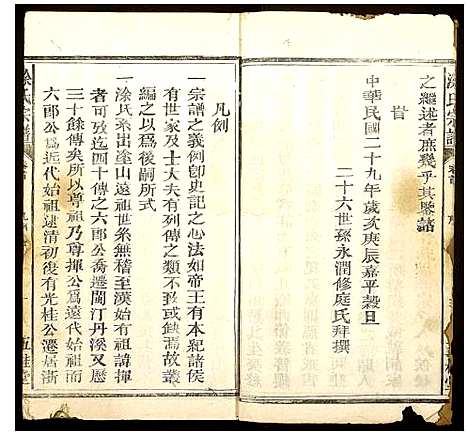 之繼述者庶幾乎其鑒諸
旹
中華民國二十九年歲亥庚辰嘉平穀旦
二十六世孫永潤修庭氏拜撰
凡例
一宗譜之義例卽史記之心法如帝王有本紀諸侯
有世家及士大夫有列傳之類不致或缺焉故叢
編之以爲後嗣所式
一涂氏系出塗山遠祖世系無稽至漢始有祖諱揮
者可攷迄四十傳之六郎公喬遷閩汀丹溪又歷
三十餘傳矣所以尊祖乃尊揮公爲遠代始祖而
六郎公爲近代始祖逮清初復有光桂公遷居浙
涂氏宗譜
五桂堂